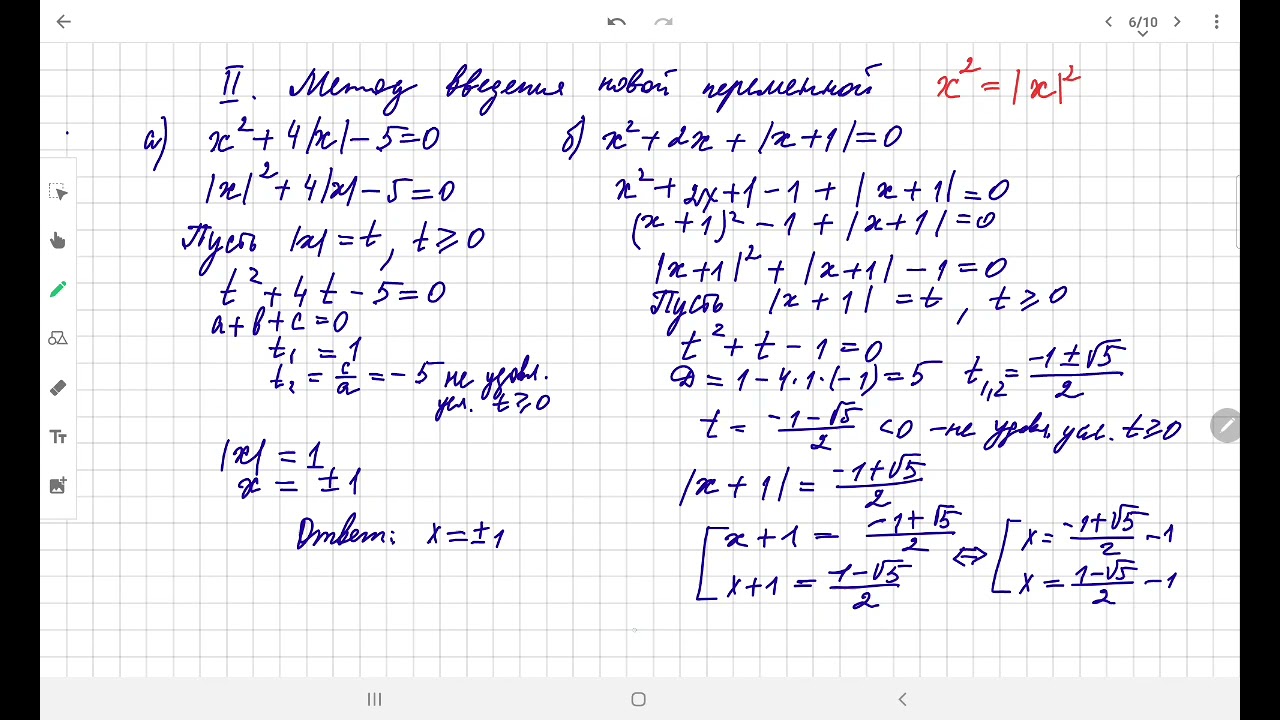 6/10
II. Метод введения новой переменной x² = |x|²
а) x² + 4|x| - 5 = 0
|x|² + 4|x| - 5 = 0
Пусть |x| = t, t ≥ 0
t² + 4t - 5 = 0
a + b + c = 0
t₁ = 1
t₂ = c/a = -5 не удовл.
усл. t ≥ 0
|x| = 1
x = ±1
Ответ: x = ±1
б) x² + 2x + |x+1| = 0
x² + 2x + 1 - 1 + |x+1| = 0
(x+1)² - 1 + |x+1| = 0
|x+1|² + |x+1| - 1 = 0
Пусть |x+1| = t, t ≥ 0
t² + t - 1 = 0
D = 1 - 4·1·(-1) = 5 t₁,₂ = (-1±√5)/2
t = (-1-√5)/2 < 0 - не удовл. усл. t ≥ 0
|x+1| = (-1+√5)/2
[ x+1 = (-1+√5)/2 ⇔ [ x = (-1+√5)/2 - 1
x+1 = (1-√5)/2 x = (1-√5)/2 - 1
Tт